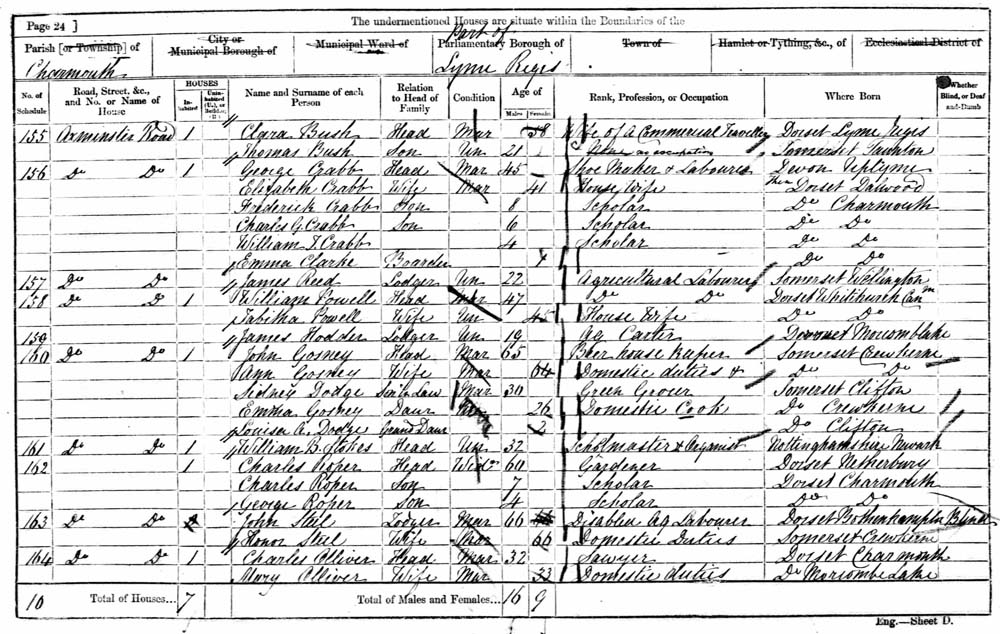 Page 24 ]
The undermentioned Houses are situate within the Boundaries of the
Parish [or Township] of
City or Municipal Borough of
Municipal Ward of
Part of
Parliamentary Borough of
Town of
Hamlet or Tything, &c., of
Ecclesiastical District of
Charmouth
Lyme Regis
No. of Schedule
Road, Street, &c., and No. or Name of House
HOUSES
Inhabited
Uninhabited (U.), or Building (B.)
Name and Surname of each Person
Relation to Head of Family
Condition
Age of
Males
Females
Rank, Profession, or Occupation
Where Born
Whether Blind, or Deaf-and-Dumb
155 Axminster Road 1 Clara Bush Head Mar 58 Wife of a Commercial Traveller Dorset Lyme Regis
Thomas Bush Son Un 21 Somerset Taunton
156 Do Do 1 George Crabb Head Mar 45 Shoe Maker & Labourer Devon Uplyme
Elizabeth Crabb Wife Mar 41 House Wife Dorset Dalwood
Frederick Crabb Son 8 Scholar Do Charmouth
Charles G. Crabb Son 6 Scholar Do Do
William J. Crabb 4 Scholar Do Do
Emma Clarke Boarder Do Do
157 Do Do James Reed Lodger Un 22 Agricultural Labourer Somerset Wellington
158 Do Do 1 William Powell Head Mar 47 Do Do Dorset Whitchurch Can
Tabitha Powell Wife Un 45 House Wife Do Do
159 James Hodder Lodger Un 19 Ag Carter Dorset Morcomblake
160 Do Do 1 John Gosney Head Mar 65 Beer house Keeper Somerset Crewkerne
Ann Gosney Wife Mar 64 Domestic duties & Do Do
Sidney Dodge Son in Law Mar 30 Green Grocer Somerset Clifton
Emma Gosney Daur 26 Domestic Cook Do Crewkerne
Louisa A. Dodge Grand Daur 2 Do Clifton
161 Do Do 1 William B. Stokes Head Un 32 Scholmaster & Organist Nottinghamshire Newark
162 1 Charles Roper Head Widr 60 Gardener Dorset Netherbury
Charles Roper Son 7 Scholar Dorset Charmouth
George Roper Son 4 Scholar Do Do
163 Do Do John Steel Lodger Mar 66 Disabled Ag Labourer Dorset Bothenhampton Blind
Honor Steel Wife Mar 66 Domestic Duties Somerset Crewkerne
164 Do Do 1 Charles Olliver Head Mar 32 Sawyer Dorset Charmouth
Mary Olliver Wife Mar 33 Domestic duties Do Morcombe Lake
10 Total of Houses... 7 Total of Males and Females... 16 9
Eng.—Sheet D.